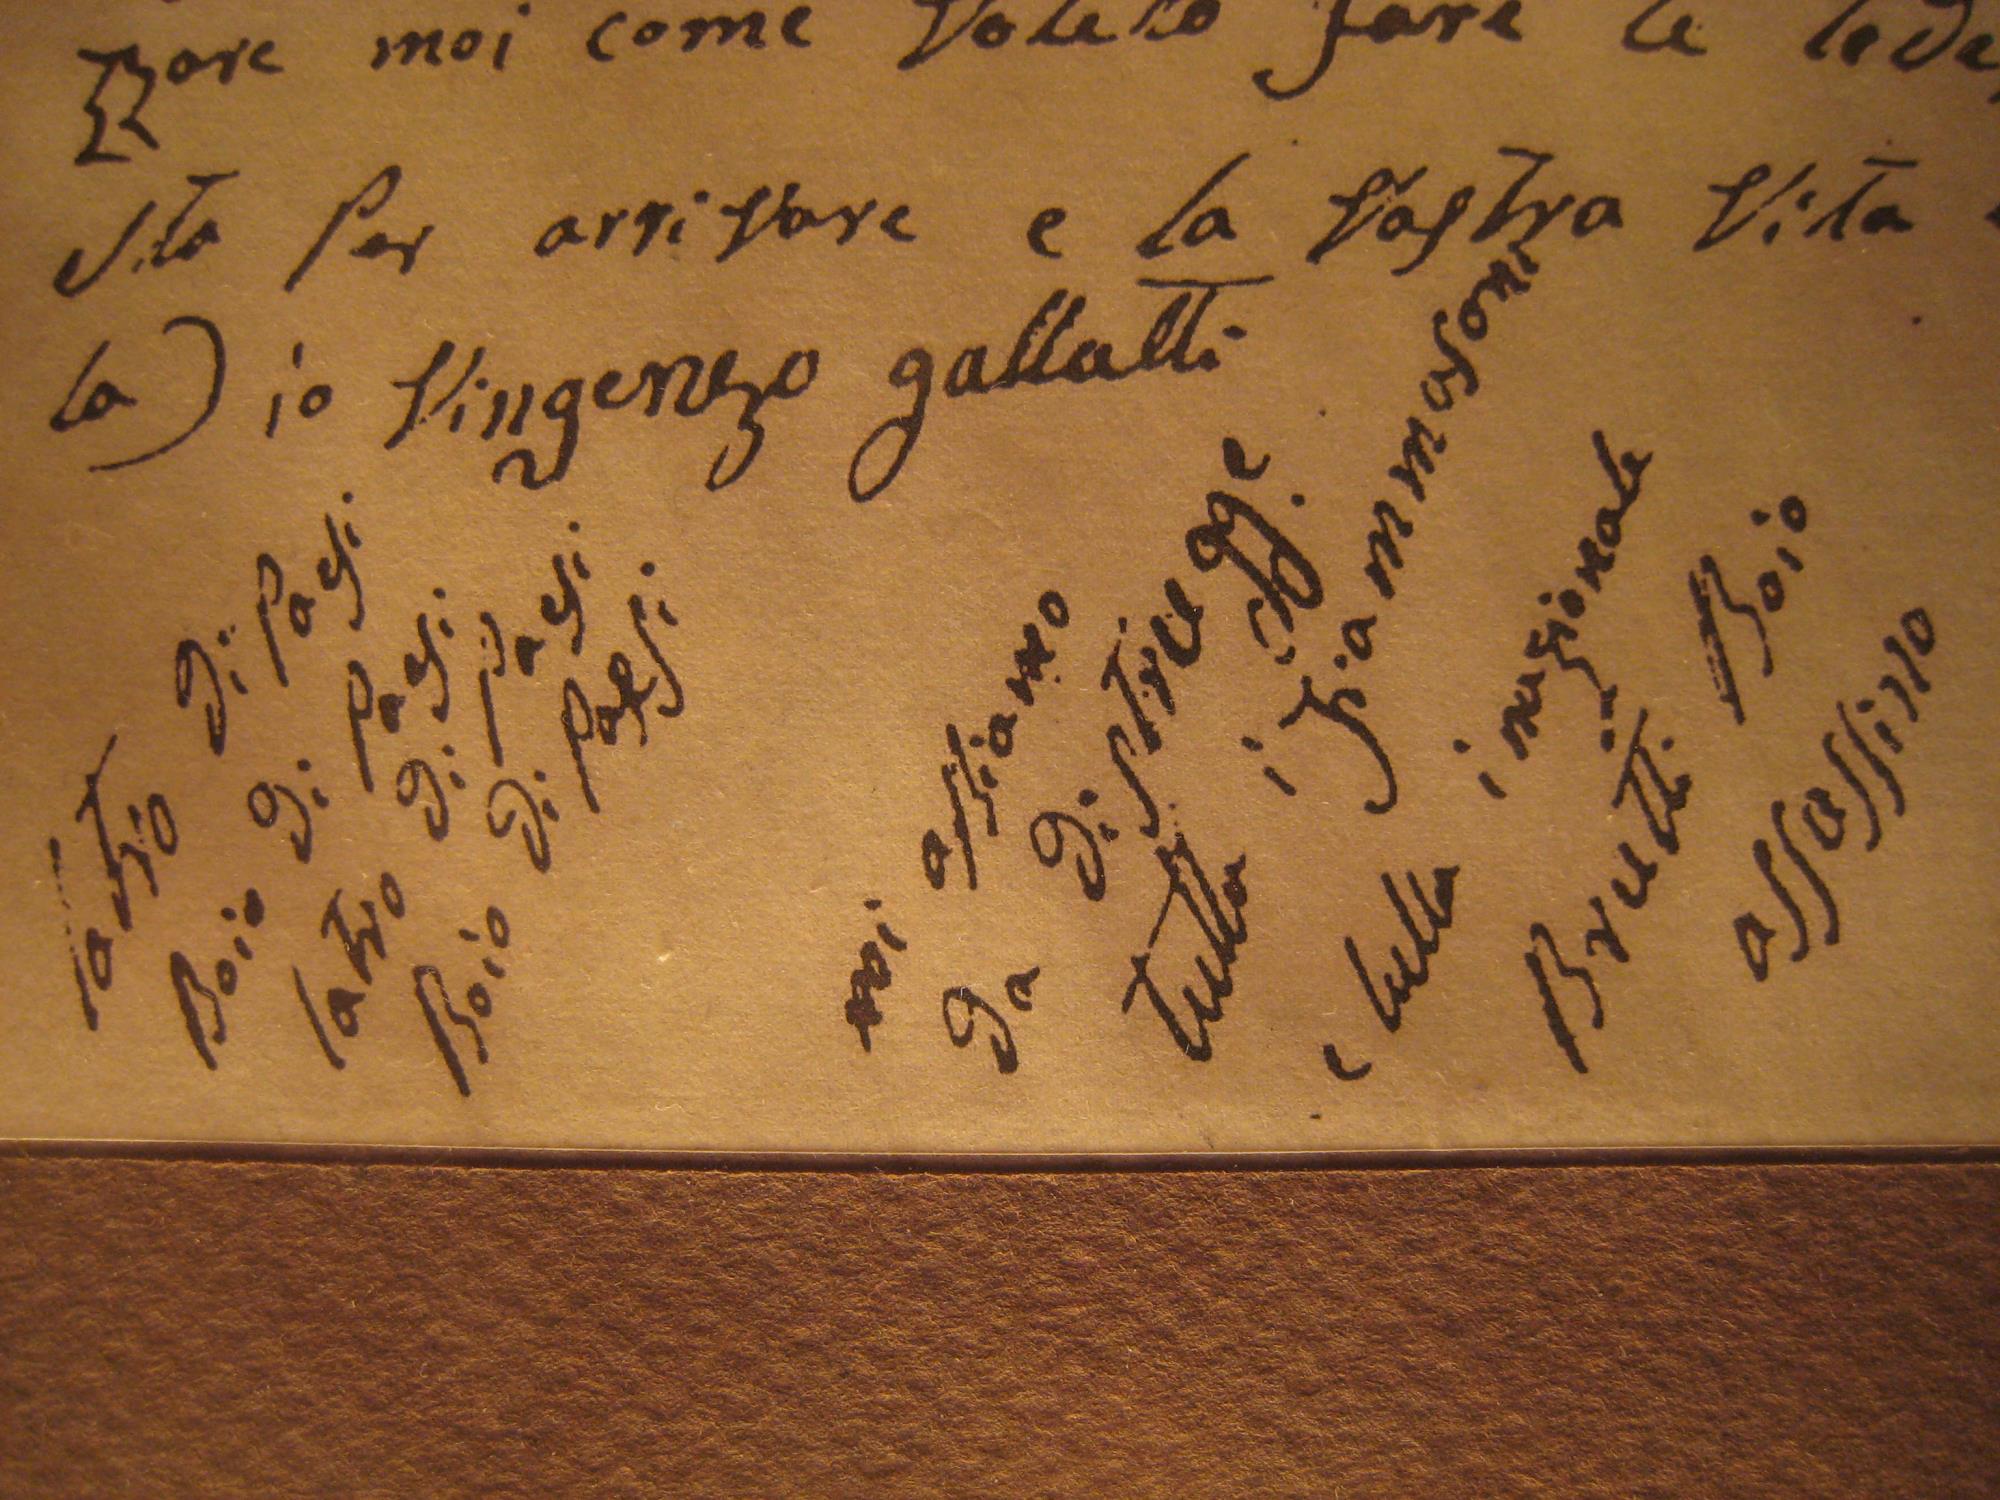 Bare moi come Volete fare le
sta Per arrivare e la Vostra Vita
la) io Vingenzo gallatti
latro Di Paesi
Boio Di Paesi
latro Di Paesi
Boio Di Paesi
noi abbiamo
Da Distrugge
tutta i gianmasoni
e tutta i nazionale
Brutti Boio
assassino